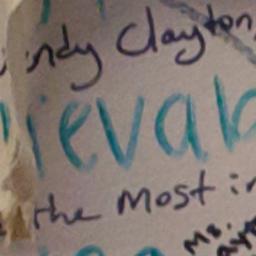 indy Clayton
ieval
the most in
Ms.